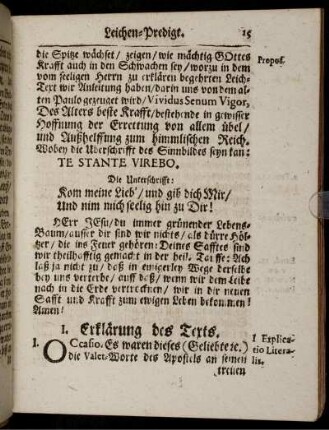 Leichen-Predigt. 15
die Spitze wächset/ zeigen/ wie mächtig GOttes
Krafft auch in den Schwachen sey/ worzu in dem
Propos.
vom seeligen Herrn zu erklären begehrten Leich-
Text wir Anleitung haben/ darin uns von dem al-
ten Paulo gezeuget wird/ Vividus Senum Vigor,
Des Alters beste Krafft/ bestehende in gewisser
Hoffnung der Errettung von allem übel/
und Außhelffung zum himmlischen Reich.
Wobey die Uberschrifft des Sinnbildes seyn kan:
TE STANTE VIREBO.
Die Unterschrifft:
Kom meine Lieb'/ und gib dich Mir/
Und nim mich seelig hin zu Dir!
HErr JEsu/ du immer grünender Lebens-
Baum/ ausser dir sind wir nichts/ als dürre Höl-
tzer/ die ins Feuer gehören: Deines Safftes sind
wir theilhafftig gemacht in der heil. Tauffe: Ach
laß ja nicht zu/ daß in einigerley Wege derselbe
bey uns verderbe/ auff daß/ wenn wir dem Leibe
nach in die Erde vertrechnen/ wir in dir neuen
Safft und Krafft zum ewigen Leben bekommen!
Amen!
I. Erklärung des Texts.
I. OCcasio. Es waren dieses (Geliebte ec.)
I Explica-
tio Litera-
lis.
die Valet-Worte des Apostels an seinen
treuen